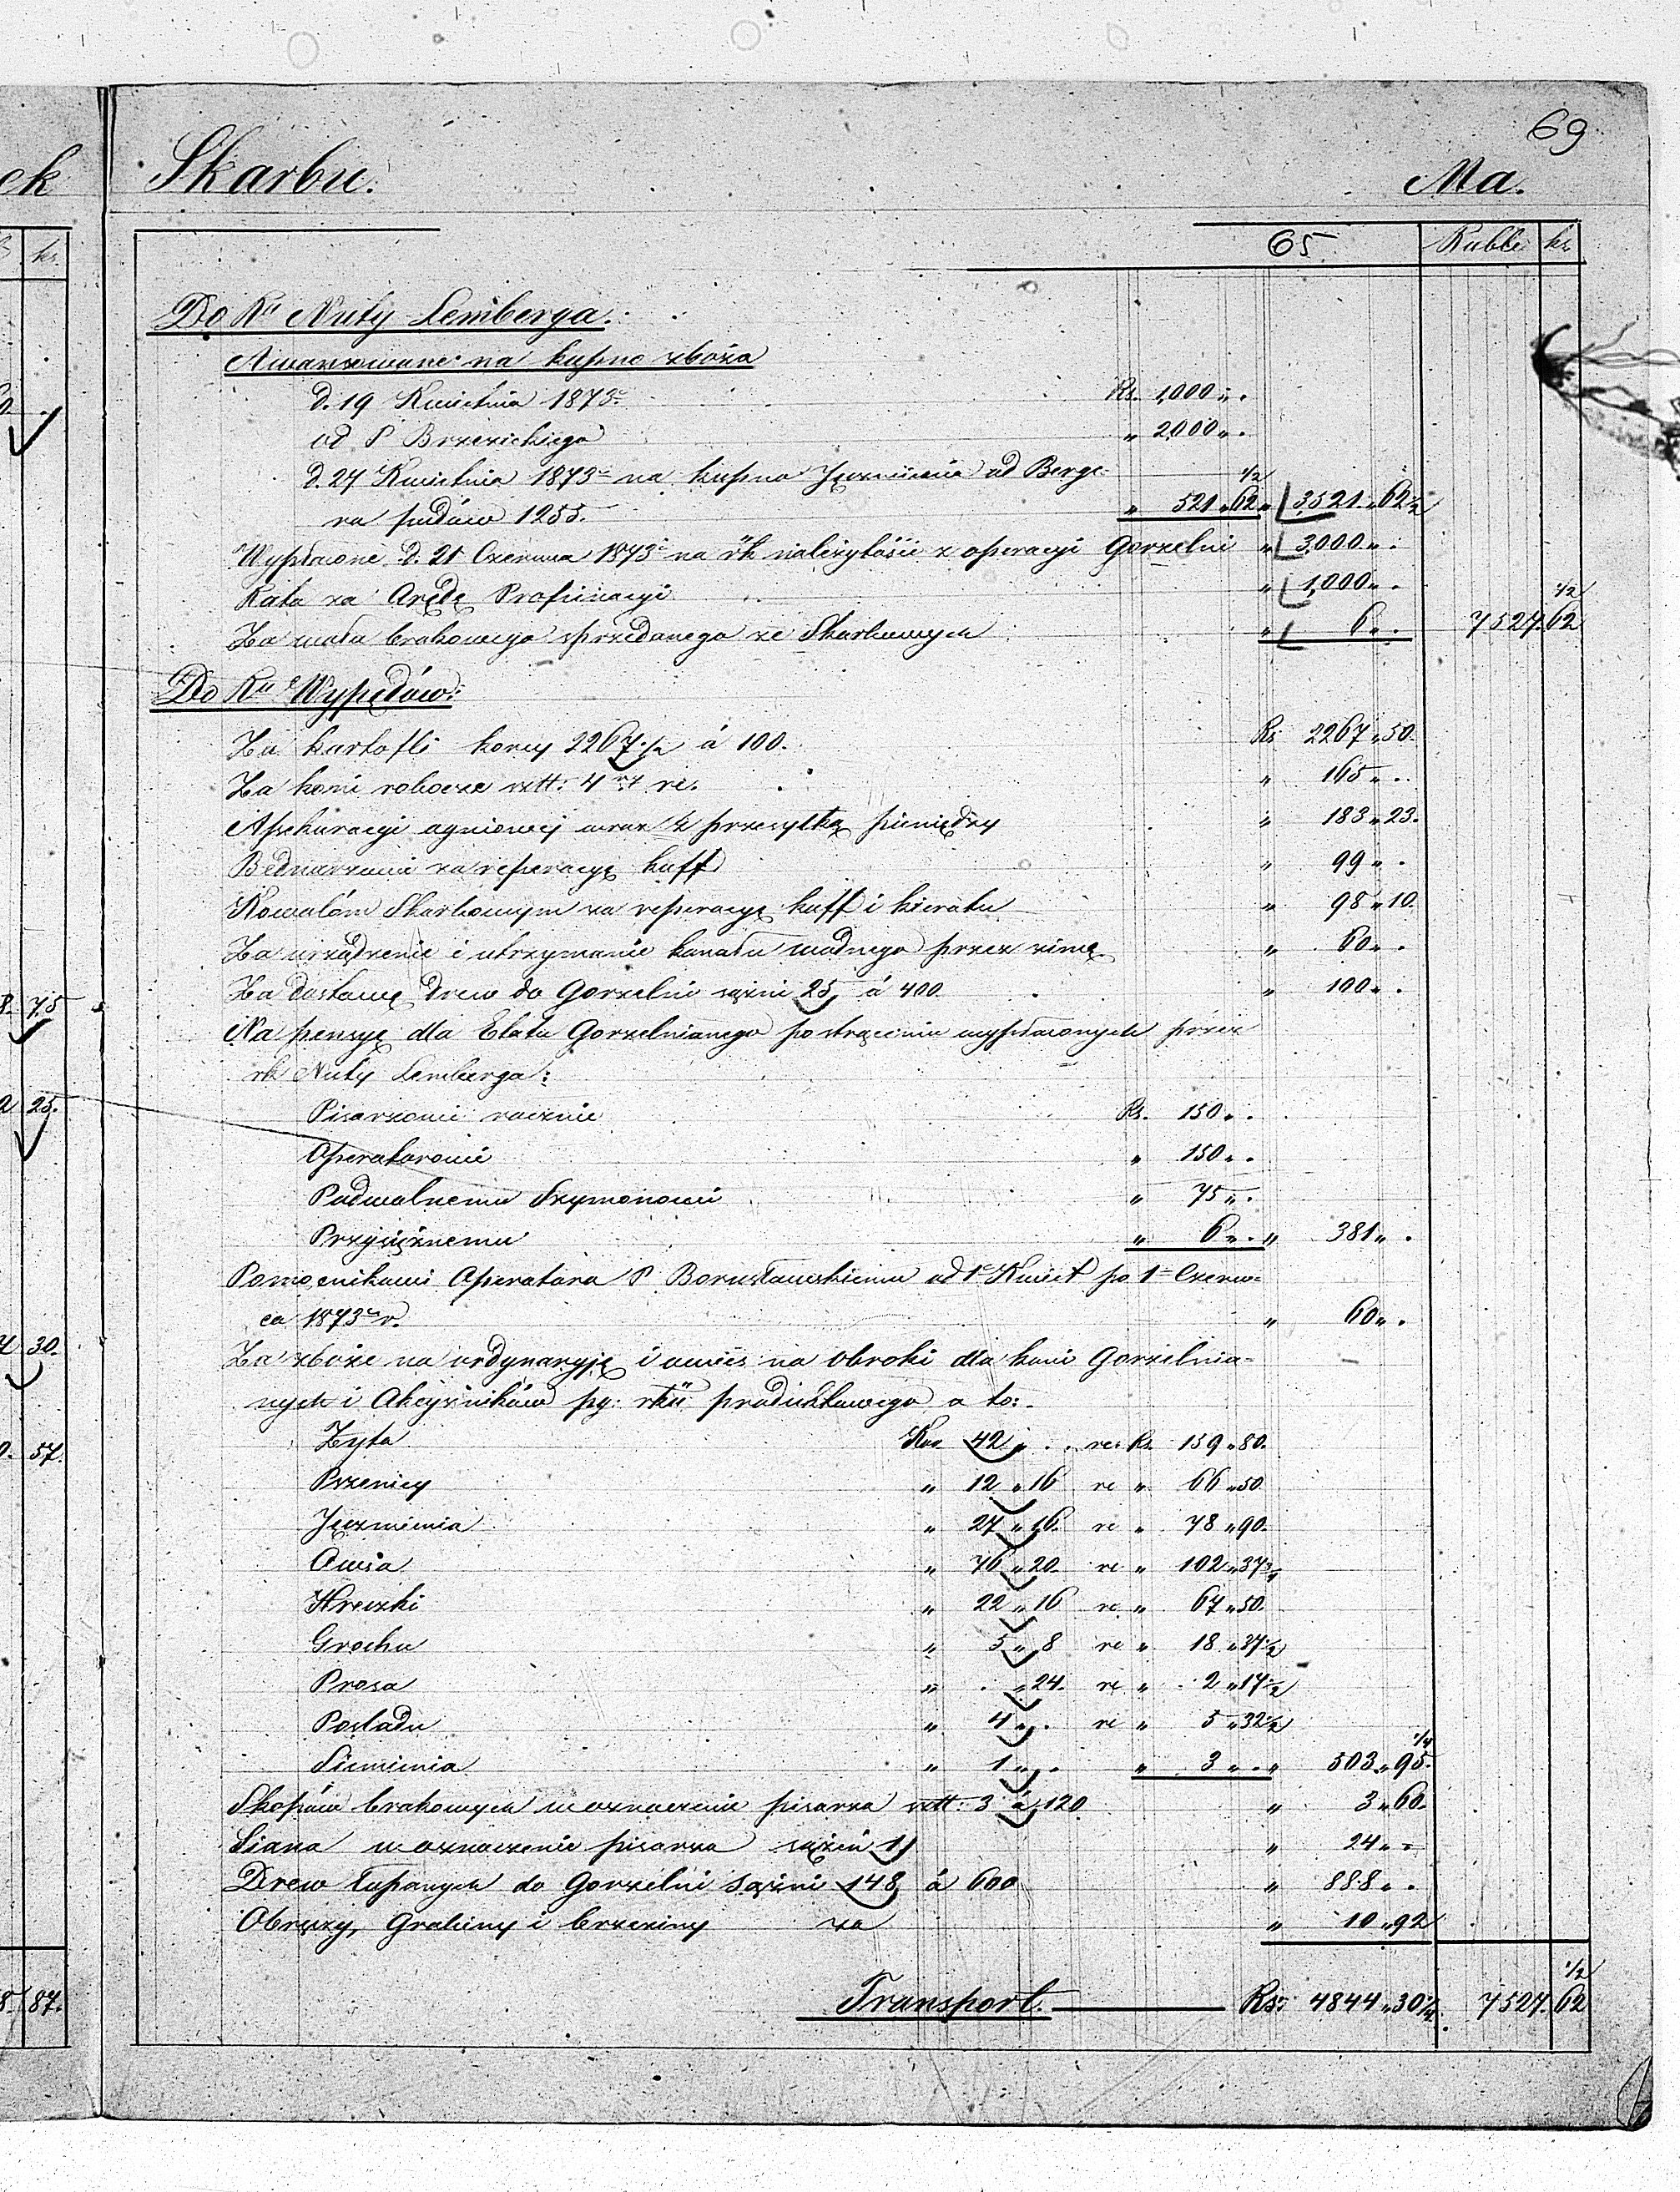 69
Skarbu. Ma.
65 Ruble kr
Do Ru Nuty Lemberga.
Awansowane na kupno zboża
d. 19 Kwietnia 1873 Rs. 1,000 " .
od P Brzezickiego " 2000 " .
d. 24 Kwietnia 1873 na kupno Jęczmienia od Berge-
ra pudów 1255. " 521 " 62 1/2 " 3,521 " 62 1/2
Wypłacone d. 21 Czerwca 1873 na rk należytości z operacyi Gorzelni " 3,000 " .
Rata za Arędę Propinacyi " 1,000 " .
Za woła brakowego sprzedanego ze Skarbowych " 6 " . 7527 62 1/2
Do Ru Wypędów:
Za kartofli korcy 2267 1/2 á 100. Rs 2267 " 50.
Za koni robocze sztt: 4 re. " 165 " .
Assekuracyi ogniowej wraz z przesyłką pieniędzy " 183 " 23.
Bednarzowi za reperacyę kuff " 99 " .
Kowalóm Skarbowym za reperacyę kuff i kieratu " 98 " 10.
Za urządzenie i utrzymanie kanału wodnego przez zimę " 60 " .
Za dostawę Drew do Gorzelni sążni 25 á 400 " 100 " .
Na pensyę dla Etatu Gorzelnianego po strąceniu wypłaconych przez
rk Nuty Lemberga:
Pisarzowi rocznie Rs. 150 " .
Operatorowi " 150 " .
Podwalnemu Szymonowi " 75 " .
Przysiężnemu " 6 " . " 381 " .
Pomocnikowi Operatora P Borusławskiemu od 1 Kwiet po 1 Czerw-
ca 1873 r. " 60 " .
Za zboże na ordynaryję i owies na obroki dla koni Gorzelnia-
nych i Akcyźników pg: rku produktowego a to:
Żyta Kor. 42 " . re Rs. 159 " 80.
Pszenicy " 12 " 16 re " 66 " 50.
Jęczmienia " 27 " 16. re " 78 " 90.
Owsa " 76 " 20. re " 102 " 37 3/4
Hreczki " 22 " 16 re " 67 " 50.
Grochu " 5 " 8 re " 18 " 37 1/2
Prosa " . " 24. re " 2 " 17 1/2
Pośladu " 4 " . re " 5 " 32 1/2
Siemienia " 1 " . " 3 " . " 503 " 95 1/4
Skopów brakowych w oznaczenie pisarza sztt: 3 á 120 " 3 " 60.
Siana w oznaczenie pisarza sążeń 1 " 24 " .
Drew łupanych do Gorzelni sążni 148 á 600 " 888 " .
Obręczy, Grabiny i brzeziny za " 10 " 92
Transport. Rs: 4844 " 30 1/4 7527. 62 1/2